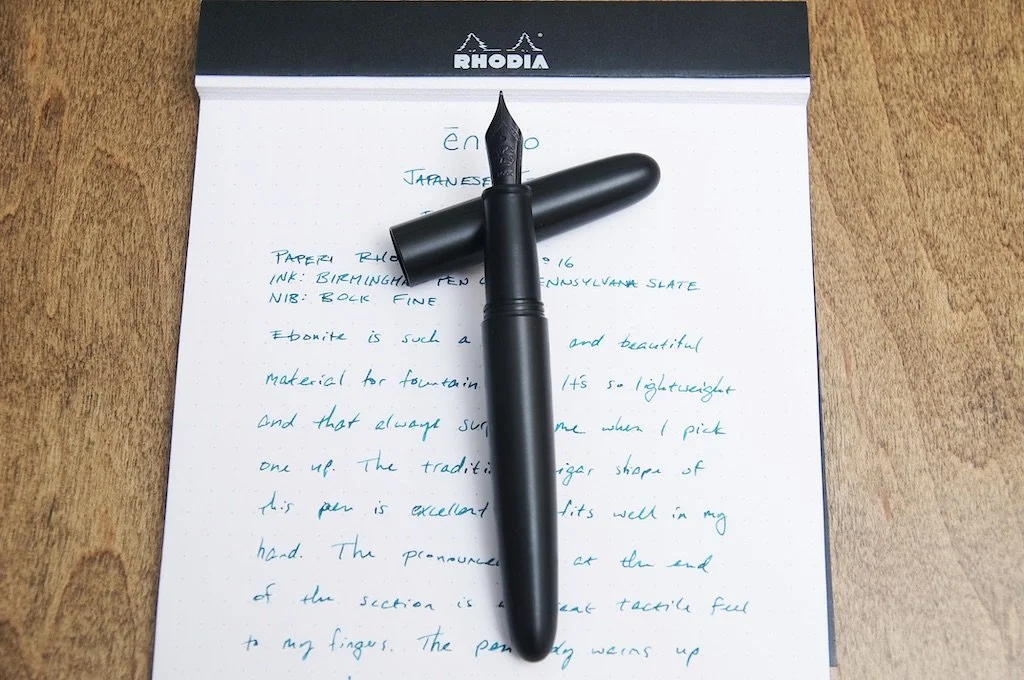 RHODIA
JAPANESE
PAPER: 16
INK: BIRMINGHAM PEN SLATE
NIB: BOCK FINE
Ebonite is such a and beautiful
material for fountain It's so lightweight
and that always me when I pick
one up. The shape of
this pen is excellent fits well in my
hand. The at the end
of the section is tactile feel
to my fingers. The pen warms up